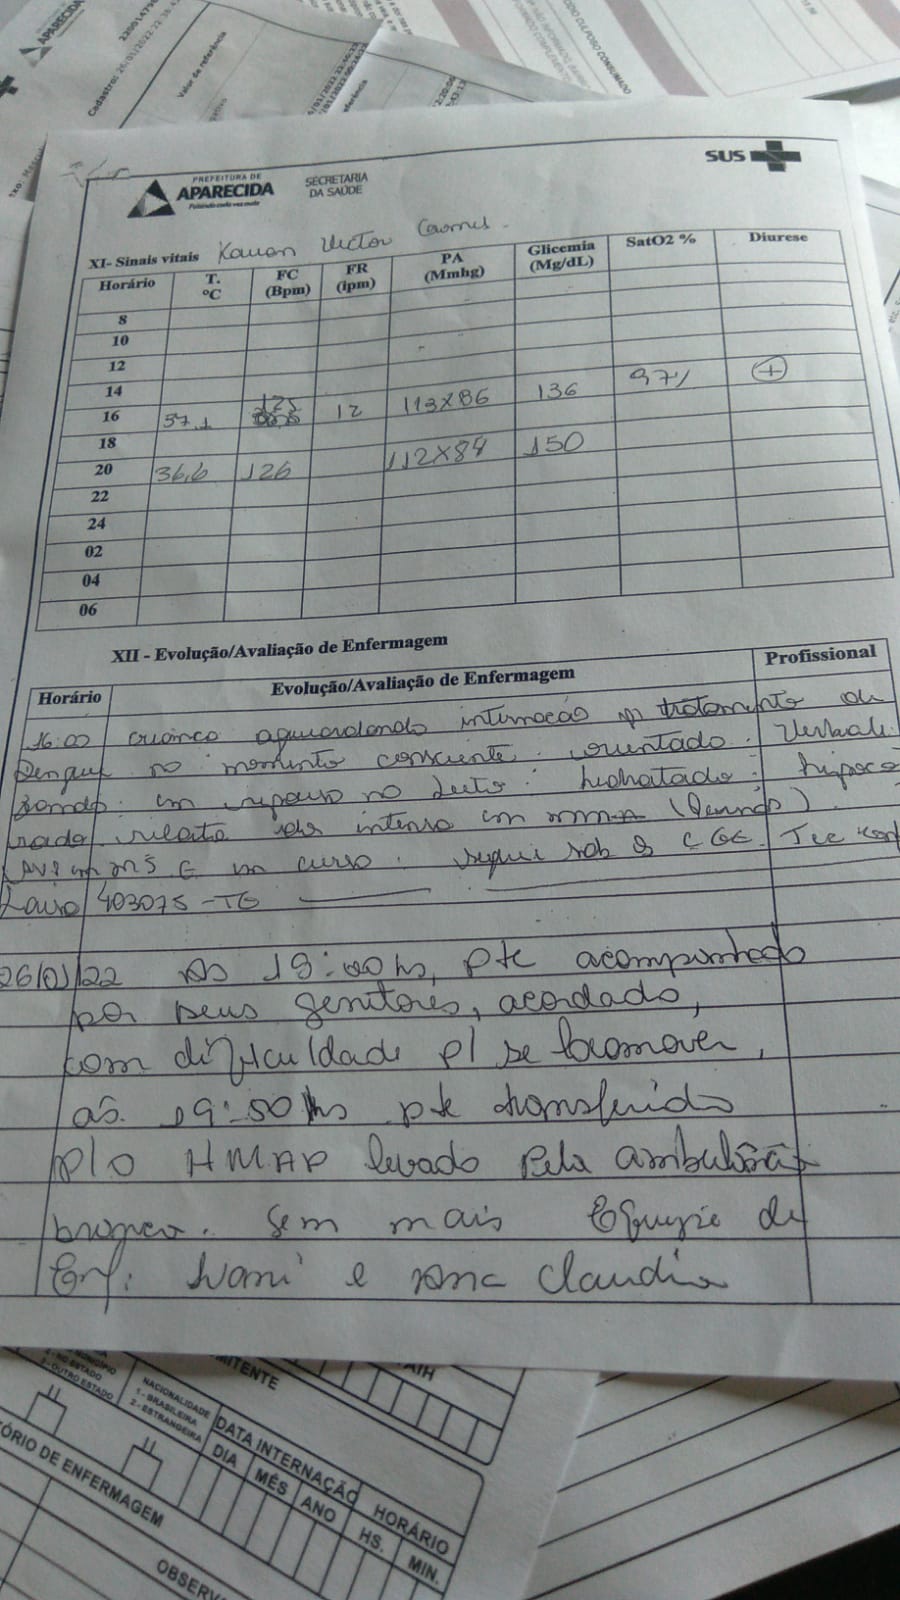 Cadastro: 26/01/2022
Valor de referência
PREFEITURA DE
APARECIDA
SECRETARIA
DA SAÚDE
SUS
XI- Sinais vitais Kauan Victor
Horário T. ºC FC (Bpm) FR (ipm) PA (Mmhg) Glicemia (Mg/dL) SatO2 % Diurese
8
10
12
14
16 37,1 125 12 113x86 136 97% +
18
20 36,6 126 112x84 150
22
24
02
04
06
XII - Evolução/Avaliação de Enfermagem
Horário Evolução/Avaliação de Enfermagem Profissional
16:00 criança aguardando internação p/ tratamento de
Dengue no momento consciente. orientado. Verbali-
zando. em repouso no leito. hidratado. hipoco
rado. relata dor intensa em
em MS E em curso. segue sob
403075-TE
26/01/22 As 19:00hs, pte acompanhado
por seus genitores, acordado,
com dificuldade p/ se locomover,
as 19:50 hs pte transferido
p/ o HMAP levado pela ambulância
branca. Sem mais Equipe de
Enf: Ivani e Ana Claudia
MITENTE
AIH
2 - NO ESTADO
3 - OUTRO ESTADO
NACIONALIDADE
1 - BRASILEIRA
2 - ESTRANGEIRA
DATA INTERNAÇÃO
DIA MÊS ANO
HORÁRIO
HS. MIN.
ÓRIO DE ENFERMAGEM
OBSERV